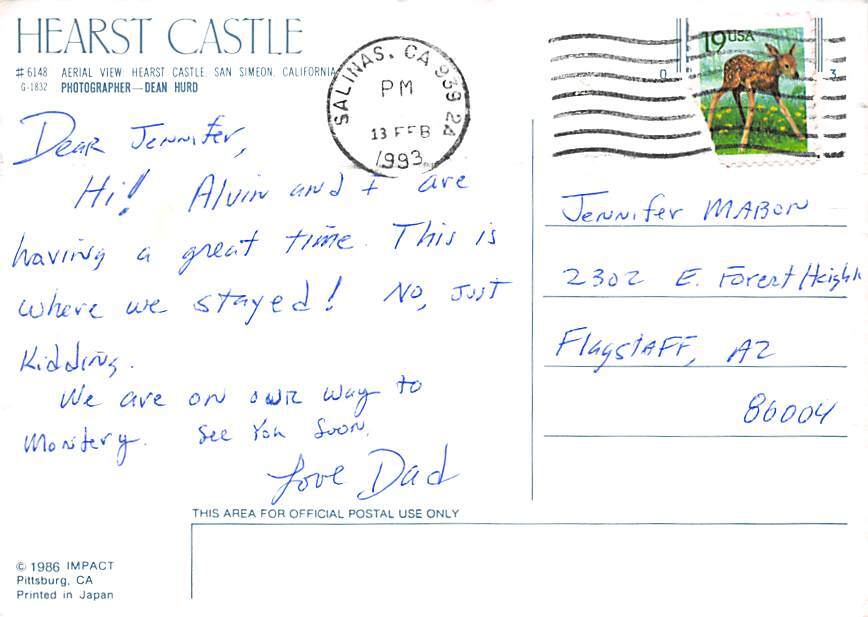 HEARST CASTLE
#6148 AERIAL VIEW HEARST CASTLE, SAN SIMEON, CALIFORNIA
G-1832 PHOTOGRAPHER—DEAN HURD
SALINAS, CA 939 24
PM
13 FEB
1993
19 USA
0 3
Dear Jennifer,
Hi! Alvin and I are
having a great time. This is
where we stayed! No, Just
Kidding.
We are on owr way to
Montery. See You Soon.
Love Dad
Jennifer MABON
2302 E. Forest Heights
Flagstaff, AZ
86004
THIS AREA FOR OFFICIAL POSTAL USE ONLY
© 1986 IMPACT
Pittsburg, CA
Printed in Japan